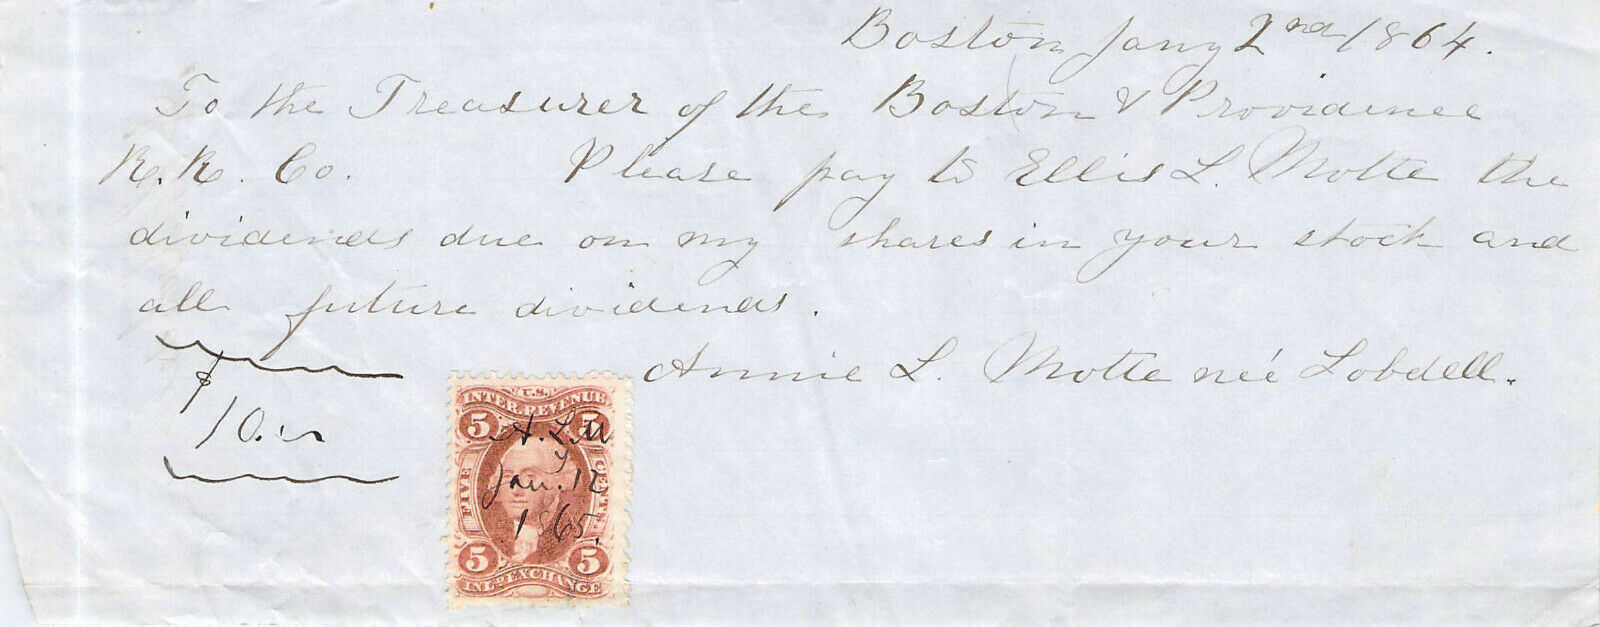 Boston Jany 2nd 1864.
To the Treasurer of the Boston & Providence
R. R. Co. Please pay to Ellis L. Motte the
dividends due on my shares in your stock and
all future dividends.
Annie L. Motte née Lobdell.
$10.
U.S.
INTER. REVENUE
5 5
A. L. M
Jany. 12
1865.
FIVE CENTS.
5 5
INL. EXCHANGE